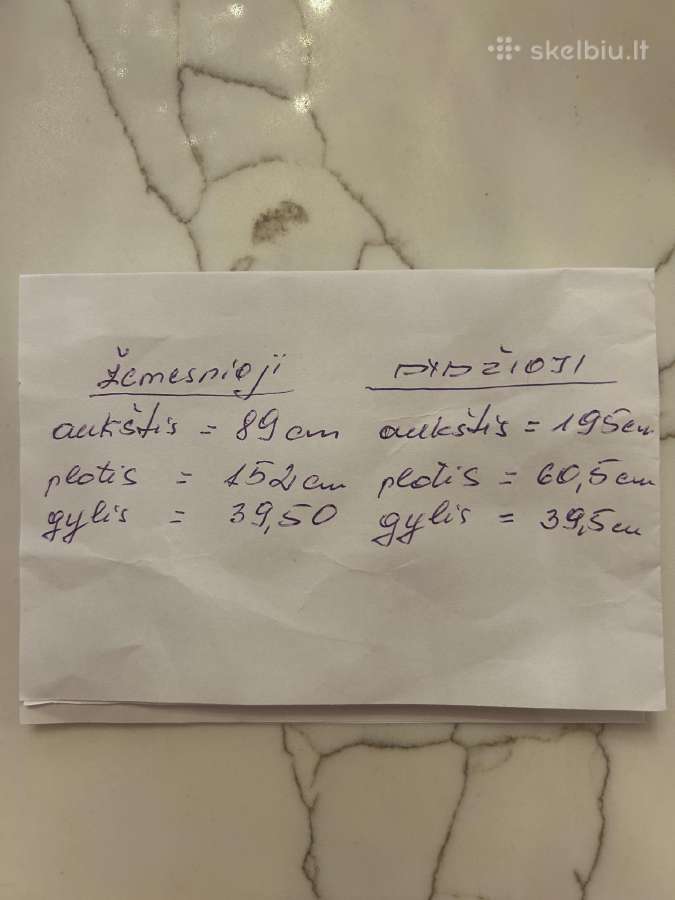 skelbiu.lt
Žemesnioji
aukštis = 89 cm
plotis = 152 cm
gylis = 39,50
DIDŽIOJI
aukštis = 195 cm
plotis = 60,5 cm
gylis = 39,5 cm